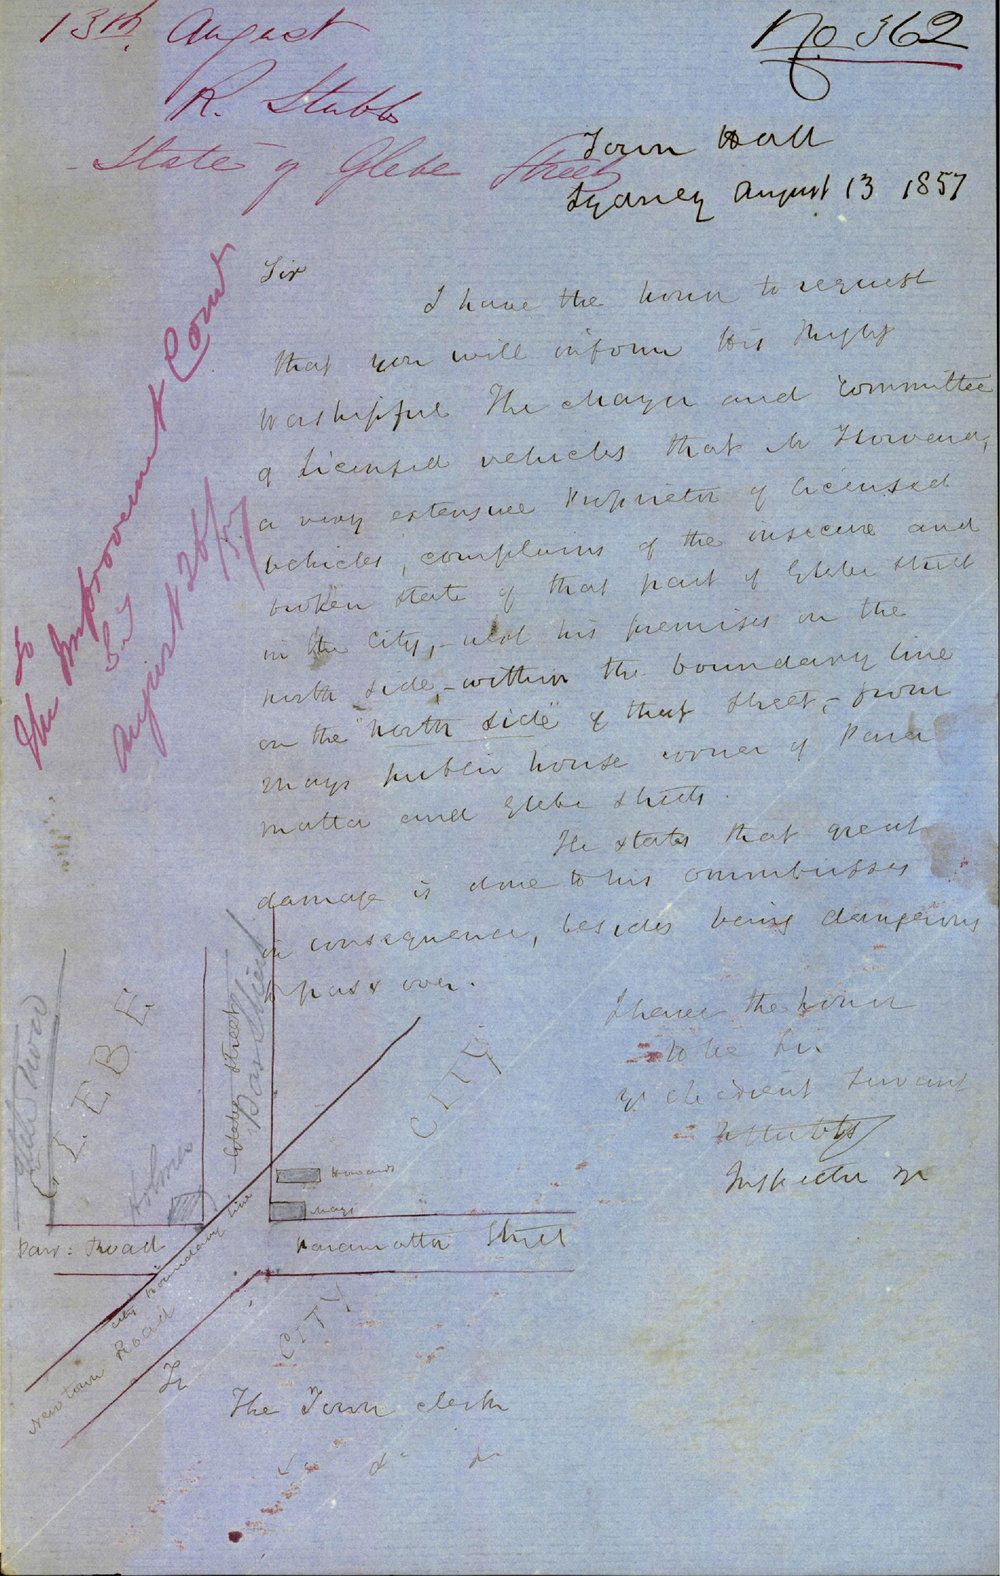 13th August
No 362
R. Stubbs
State of Glebe Street
Town Hall
Sydney August 13 1857
To
The Improvement Com
August 26/57
Sir
I have the honor to request
that you will inform His Right
Worshipful The Mayor and Committee
of Licensed vehicles that Mr Howard,
a very extensive Proprietor of licensed
vehicles, complains of the insecure and
broken state of that part of Glebe Street
in the City, - next his premises on the
north side, - within the boundary line
on the "north side" of that Street, - from
Mays public house corner of Para
matta and Glebe Streets.
He states that great
damage is done to his ommibusses
in consequence, besides being dangerous
to pass over.
I have the honor
to be Sir
yr obedient Servant
R Stubbs
Inspector
GLEBE
Glebe Street
CITY
Howards
Mays
Parr: Road
Paramatta Street
City Boundary line
Newtown Road
CITY
To
The Town Clerk